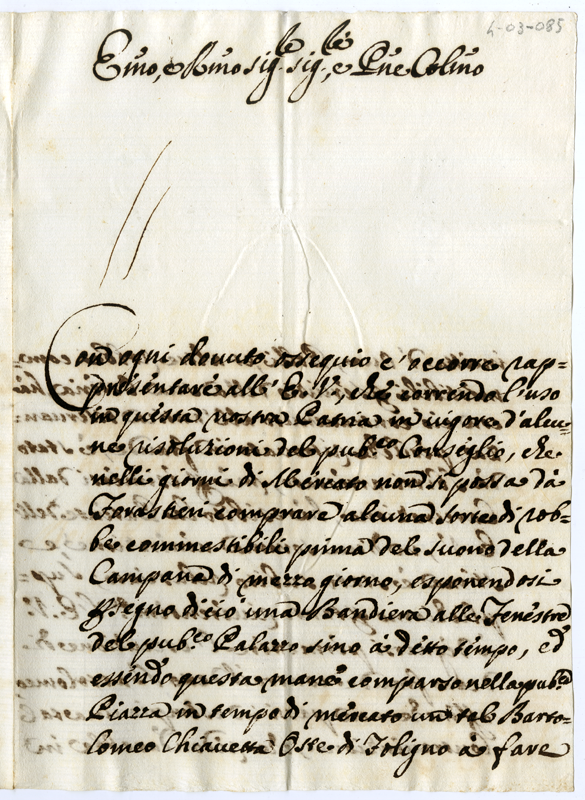 4-03-085
Emo, e Rmo sig.re sig.re, e Pne Colmo
Con ogni dovuto ossequio e' occorre rap=
presentare all' E. V., che correndo l'uso
in questa nostra Patria in vigore d'alcu=
ne risoluzioni del pub.co Consiglio, che
nelli giorni di Mercato non si possa dà
Forastieri comprare alcuna sorte di rob=
be commestibili prima del suono della
Campana di mezzo giorno, esponendosi
P. segno di ciò una Bandiera alle Fenestre
del pub.co Palazzo sino à detto tempo, ed
essendo questa mane comparso nella pub.ca
Piazza in tempo di mercato un tal Barto=
lomeo Chiavetta Oste di Foligno à fare